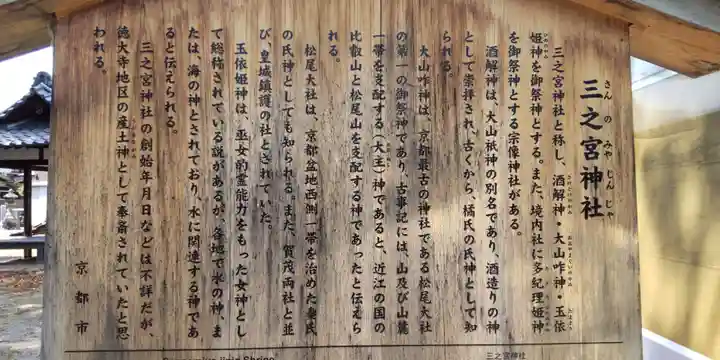 三之宮神社
さん の みや じん じゃ
三之宮神社と称し、酒解神・大山咋神・玉依
姫神を御祭神とする。また、境内社に多紀理姫神
を御祭神とする宗像神社がある。
酒解神は、大山祇神の別名であり、酒造りの神
として崇拝され、古くから、橘氏の氏神として知
られる。
大山咋神は、京都最古の神社である松尾大社
の第一の御祭神であり、古事記には、山及び山麓
一帯を支配する（大主）神であると、近江の国の
比叡山と松尾山を支配する神であったと伝えら
れる。
松尾大社は、京都盆地西側一帯を治めた秦氏
の氏神としても知られる。また、賀茂両社と並
び、皇城鎮護の社とされていた。
玉依姫神は、巫女的霊能力をもった女神とし
て総称されている説があるが、各地で水の神、ま
たは、海の神とされており、水に関連する神であ
ると伝えられる。
三之宮神社の創始年月日などは不詳だが、
徳大寺地区の産土神として奉斎されていたと思
われる。
京都市
三之宮神社